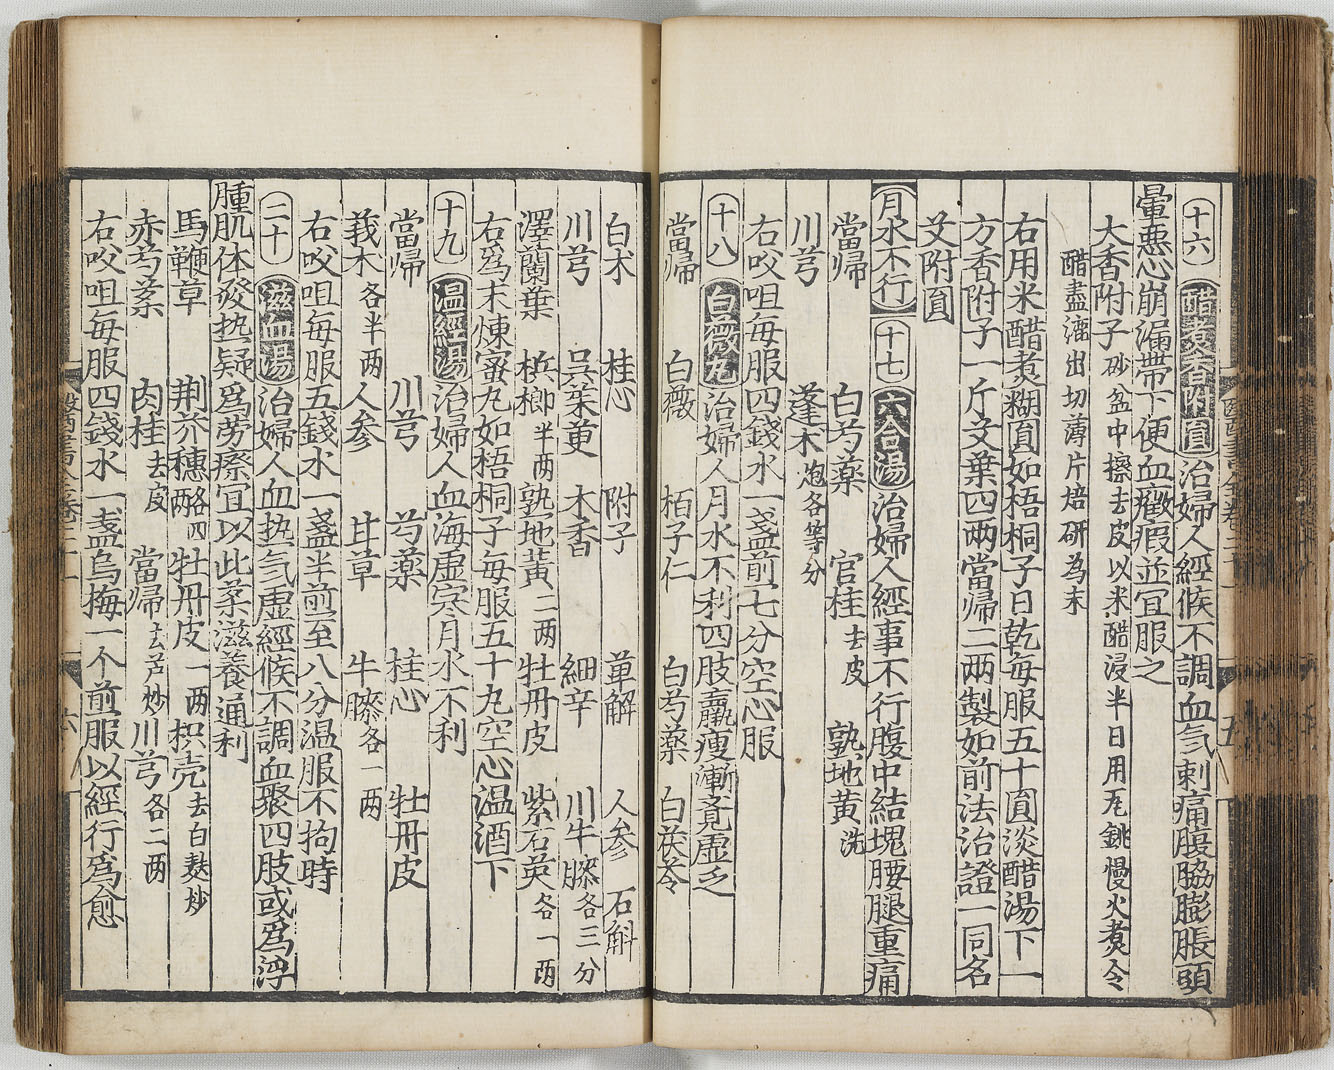 十六 醋煮香附圓 治婦人經候不調血气刺痛腹脇膨脹頭
暈惡心崩漏帶下便血癥瘕並宜服之
大香附子 砂盆中擦去皮以米醋浸半日用瓦銚慢火煮令
醋盡漉出切薄片焙研為末
右用米醋煮糊圓如梧桐子日乾每服五十圓淡醋湯下一
方香附子一斤艾葉四兩當帰二兩製如前法治證一同名
艾附圓
月水不行 十七 六合湯 治婦人經事不行腹中結塊腰腿重痛
當帰 白芍藥 官桂去皮 熟地黃洗
川芎 蓬朮炮各等分
右㕮咀每服四錢水一盞前七分空心服
十八 白薇丸 治婦人月水不利四肢羸瘦漸覚虛乏
當帰 白薇 栢子仁 白芍藥 白茯苓
白朮 桂心 附子 萆解 人参 石斛
川芎 吳茱萸 木香 細辛 川牛膝各三分
澤蘭葉 檳榔半兩 熟地黃二兩 牡丹皮 紫石英各一兩
右為末煉蜜丸如梧桐子每服五十丸空心温酒下
十九 温經湯 治婦人血海虛寒月水不利
當帰 川芎 芍藥 桂心 牡丹皮
莪朮各半兩 人参 甘草 牛膝各一兩
右㕮咀每服五錢水一盞半煎至八分温服不拘時
二十 滋血湯 治婦人血热气虛經候不調血聚四肢或為浮
腫肌体發热疑為劳瘵宜以此藥滋養通利
馬鞭草 荆芥穗各四兩 牡丹皮一兩 枳壳去白麩炒
赤芍藥 肉桂去皮 當帰去芦炒 川芎各二兩
右㕮咀每服四錢水一盞烏梅一个煎服以經行為愈
六